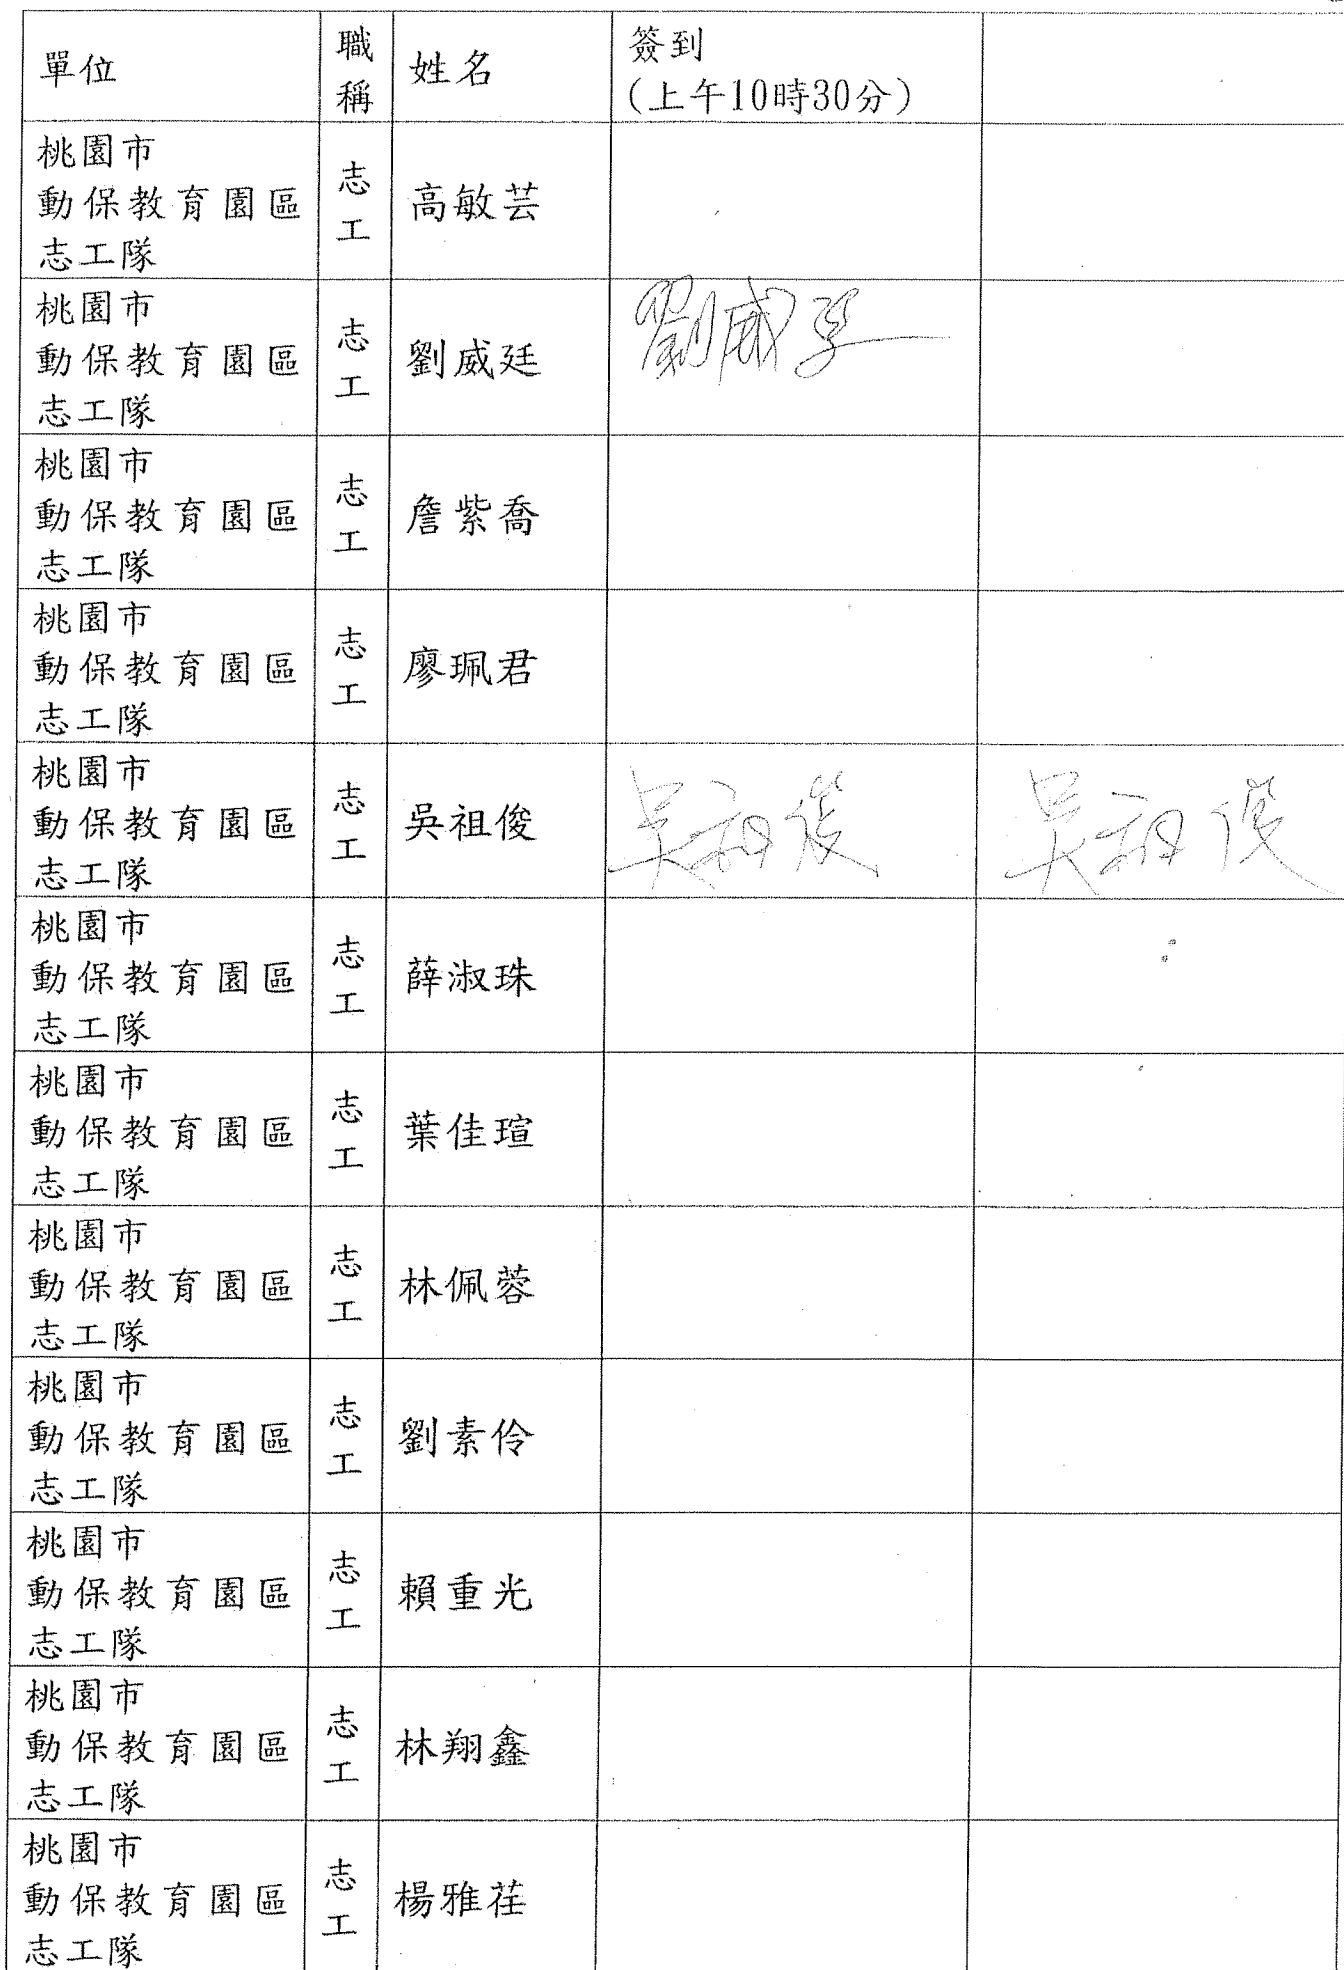 單位
職稱
姓名
簽到
(上午10時30分)
桃園市
動保教育園區
志工隊
志工
高敏芸
桃園市
動保教育園區
志工隊
志工
劉威廷
劉威廷
桃園市
動保教育園區
志工隊
志工
詹紫喬
桃園市
動保教育園區
志工隊
志工
廖珮君
桃園市
動保教育園區
志工隊
志工
吳祖俊
吳祖俊
吳祖俊
桃園市
動保教育園區
志工隊
志工
薛淑珠
桃園市
動保教育園區
志工隊
志工
葉佳瑄
桃園市
動保教育園區
志工隊
志工
林佩蓉
桃園市
動保教育園區
志工隊
志工
劉素伶
桃園市
動保教育園區
志工隊
志工
賴重光
桃園市
動保教育園區
志工隊
志工
林翔鑫
桃園市
動保教育園區
志工隊
志工
楊雅荏